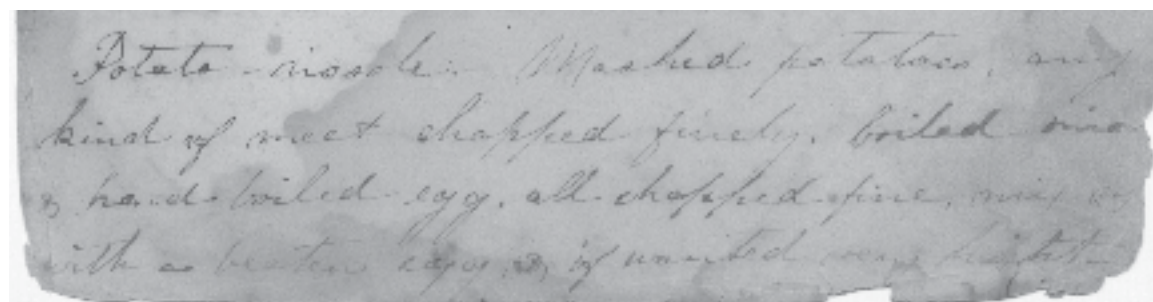 Potato Mashed potatoes, any
kind of meat chopped finely. boiled
& hard boiled egg. all chopped fine. mix up
with a beaten egg, & if wanted very light